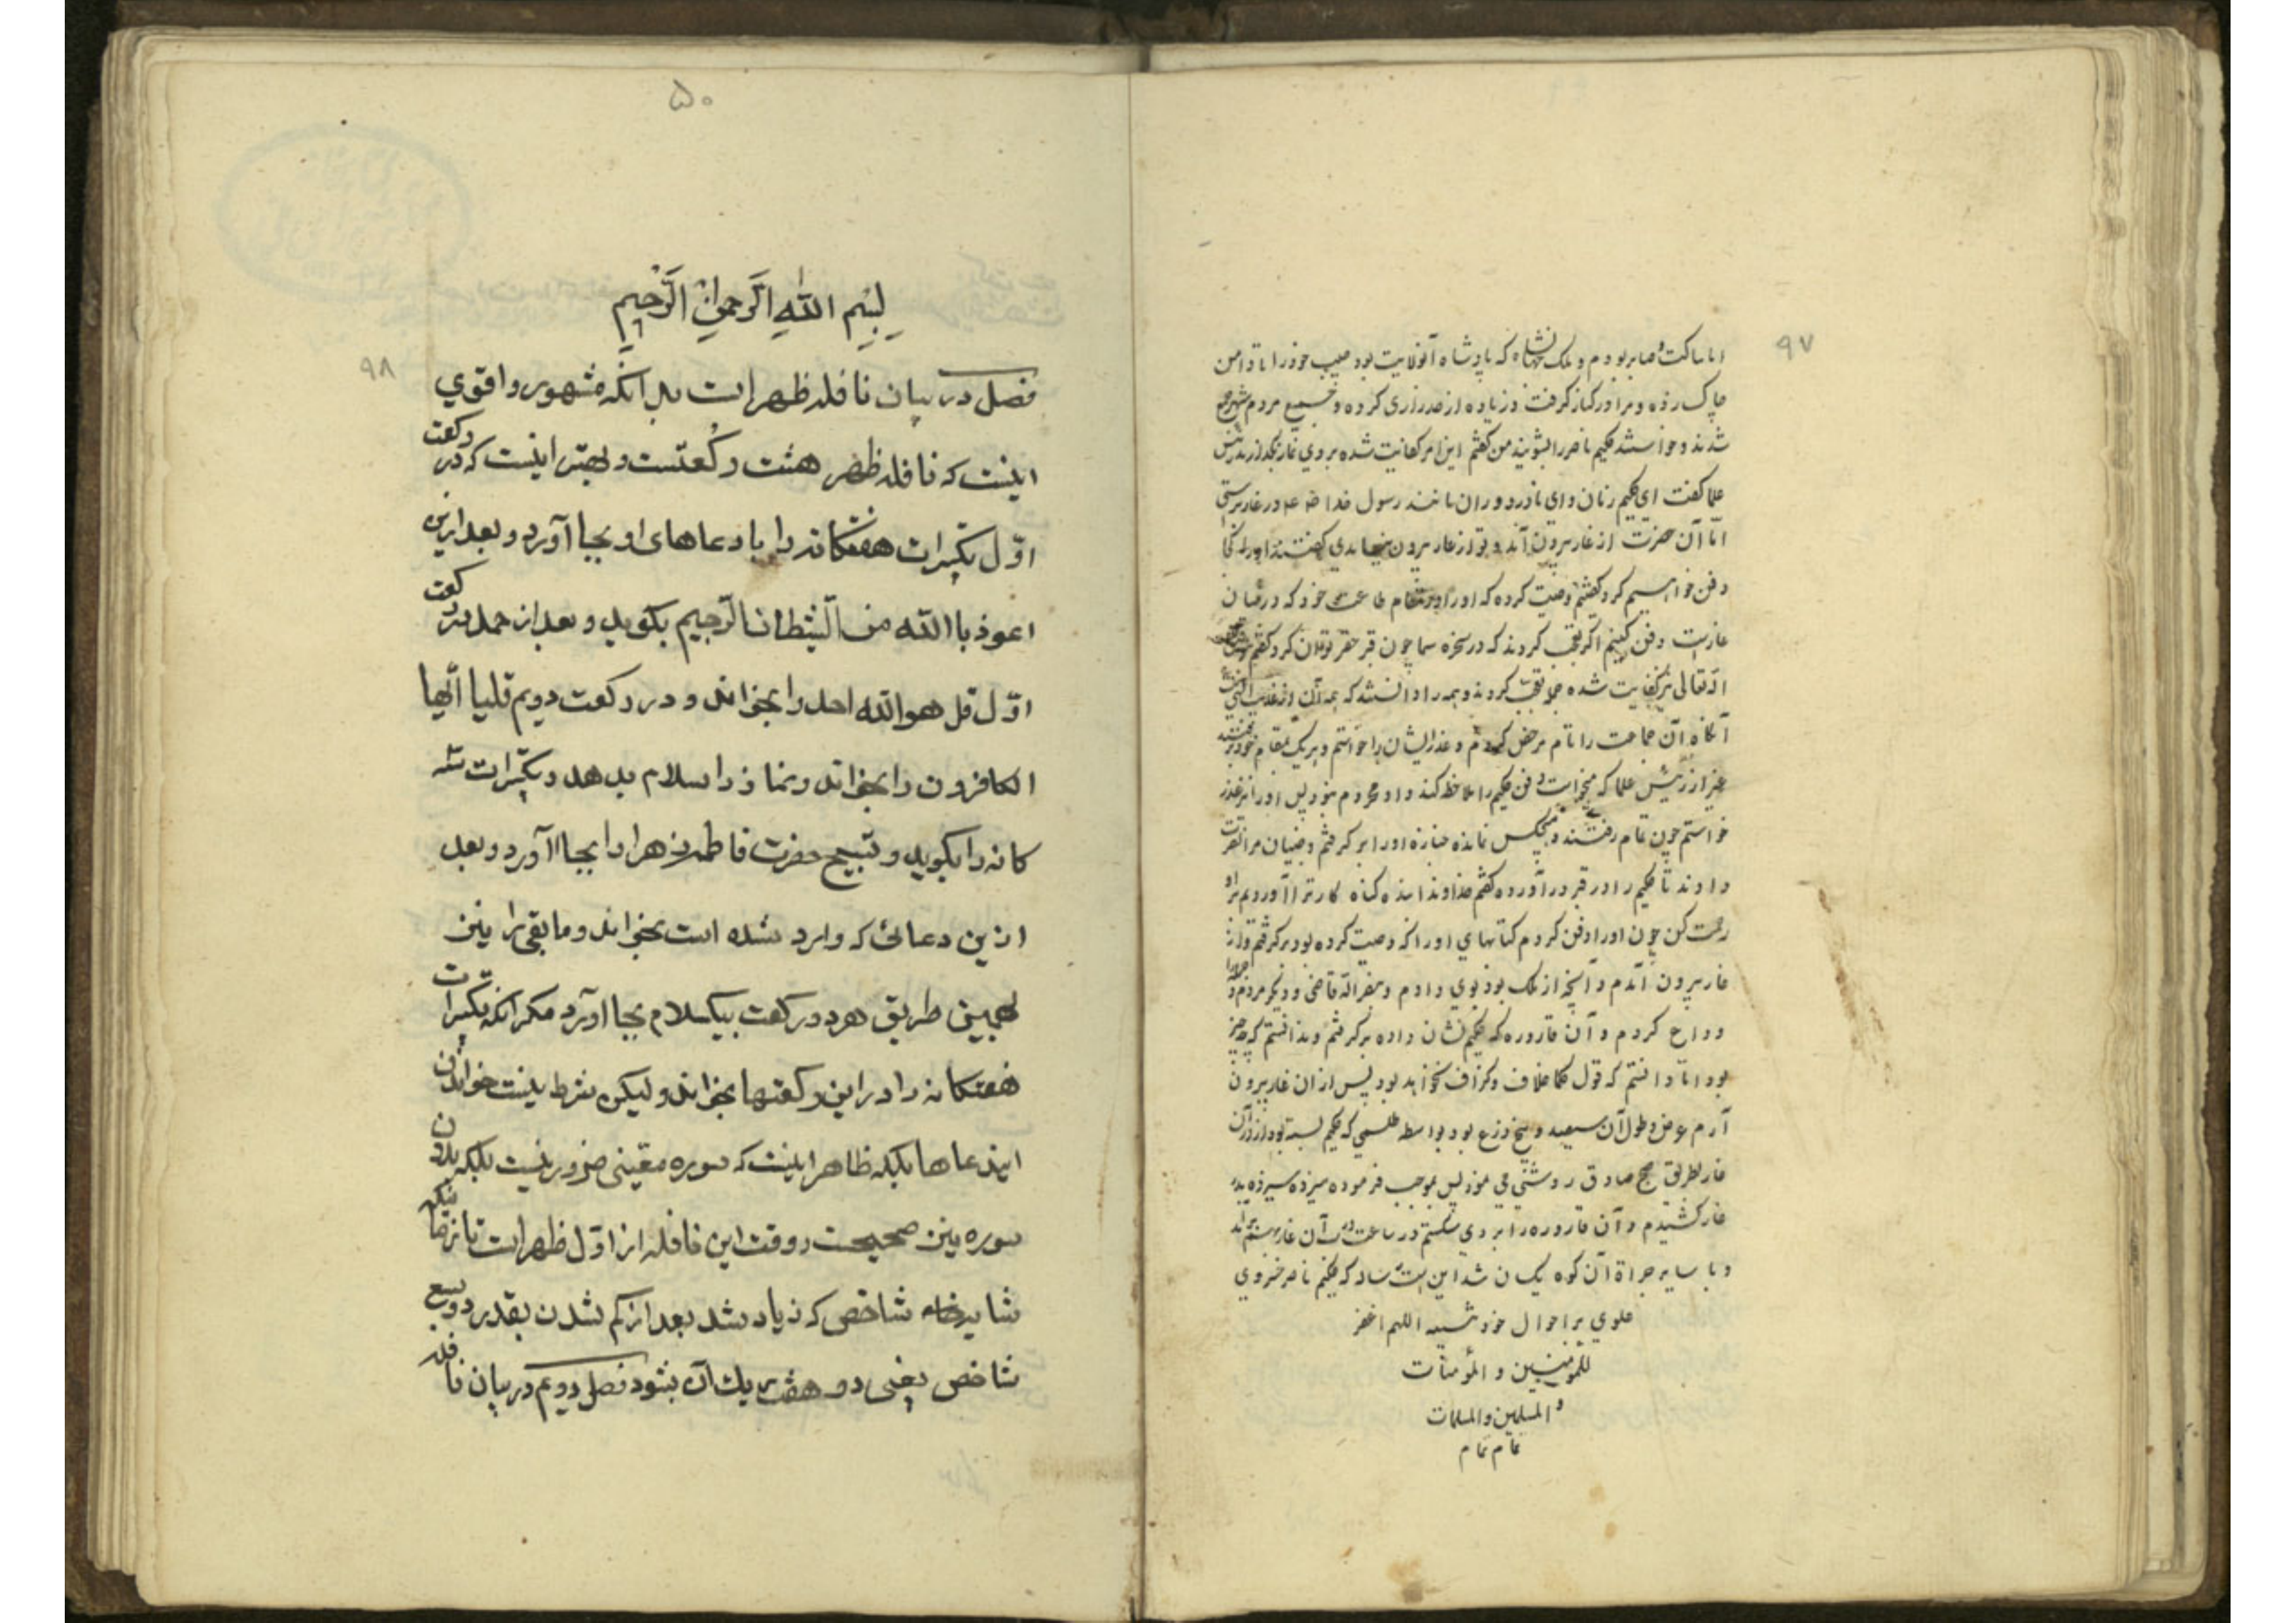 ۹۷
اما ساکت و صابر بودم و ملک جهانشاه که پادشاه آنولایت بود جیب خود را تا دامن
چاک زده و مرا در کنار گرفت و زیاده از حد زاری کرده و جمیع مردم شهر جمع
شدند و خواستند حکیم ناصر را بشویند من گفتم این امر کفایت شده بر وی نماز بگذارید رئیس
علما گفت ای حکیم زنان و ای نادر دوران مانند رسول خدا در غار
اما آن حضرت از غار بیرون آمد و تو از غار بیرون نیامدی گفتند او را کجا
دفن خواهیم کرد گفتم وصیت کرده که او را در مقام طاعت خود که در میان
غار است دفن کنیم اکر تعجب کردند که در سخره سما چون قبر حفر توان کرد گفتم
الله تعالی نیز کفایت شده جمله تعجب کردند و همه را دانستند که همه آن از
آنگاه آن جماعت را تمام مرخص کردم و عذر ایشان را خواستم و هر یک بمقام خود رفتند
غیر از رئیس علما که میخواست دفن حکیم را ملاحظه کند و او محروم نبود پس او را نیز عذر
خواستم چون تمام رفتند و هیچکس نمانده جنازه او را بر گرفتم و جنیان مرا نصرت
دادند تا حکیم را در قبر در آورده گفتم خداوندا بنده گناه کار ترا آوردم بر او
رحمت کن چون او را دفن کردم کتابهای او را که وصیت کرده بود برگرفتم و از
غار بیرون آمدم و آنچه از ملک بود بوی دادم و بنصر الله قاضی و دیگر مردم
وداع کردم و آن قاروره که حکیم نشان داده برگرفتم و ندانستم که چه چیز
بود اما دانستم که قول حکما خلاف و گزاف نخواهد بود پس از آن غار بیرون
آمدم عرض و طول آن سیصد و پنج ذرع بود بواسطه طلسمی که حکیم بسته بود از در آن
غار بطریق صبح صادق روشنی می نمود پس بموجب فرموده سیزده سیزده بدر
غار کشیدم و آن قاروره را بر وی شکستم در ساعت در آن غار بسته شد
و با سایر جراة آن کوه یکسان شد این است رساله که حکیم ناصر خسروی
علوی بر احوال خود نوشته اللهم اغفر
للمؤمنین و المؤمنات
و المسلمین و المسلمات
تمام تمام
۵۰
۹۸
بسم الله الرحمن الرحیم
فصل در بیان نافله ظهر است بدانکه مشهور و اقوی
اینست که نافله ظهر هشت رکعتست و بهتر اینست که در رکعت
اوّل تکبیرات هفتکانه را با دعاهای او بجا آورد و بعد ازین
اعوذ باالله من الشیطان الرجیم بکوید و بعد از حمد در رکعت
اوّل قل هو الله احد را بخواند و در رکعت دویم قلیا ایها
الکافرون را بخواند و نماز را سلام بدهد و تکبیرات سه
کانه را بکوید و تسبیح حضرت فاطمه زهرا را بجا اآورد و بعد
ازین دعائی که وارد شده است بخواند و ما بقی را نیز
بهمین طریق هر دو رکعت بیکسلام بجا اورد مکر انکه تکبیرات
هفتکانه را در این رکعتها بخواند و لیکن شرط نیست خواندن
این دعاها بلکه ظاهر اینست که سوره معینی ضرور نیست بلکه بدون
سوره نیز صحیحست و وقت این نافله از اوّل ظهر است تا زمانیکه
شاخص که زیاد شد بعد از کم شدن بقدر دو سبع
شاخص یعنی دو هفت یک آن بشود فصل دویم در بیان نافله